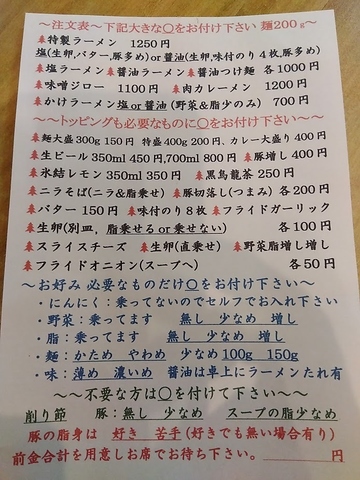 ～注文表～下記大きな〇をお付け下さい 麺200g～
特製ラーメン 1250円
塩(生卵,バター,豚多め)or醤油(生卵,味付のり4枚,豚多め)
塩ラーメン 醤油ラーメン 醤油つけ麺 各1000円
味噌ジロー 1100円 肉カレーメン 1200円
かけラーメン塩or醤油(野菜&脂少のみ) 700円
～～トッピングも必要なものに〇をお付け下さい～～
麺大盛300g 150円 特盛400g 200円、カレー大盛り400円
生ビール350ml 450円,700ml 800円 豚増し400円
氷結レモン350ml 350円 黒烏龍茶 250円
ニラそば(ニラ&脂乗せ) 豚切落し(つまみ) 各200円
バター 150円 味付のり8枚 フライドガーリック
生卵(別皿、脂乗せる or 乗せない) 各100円
スライスチーズ 生卵(直乗せ) 野菜脂増し増し
フライドオニオン(スープへ) 各50円
～お好み 必要なものだけ〇をお付け下さい～
・にんにく:乗ってないのでセルフでお入れ下さい
・野菜:乗ってます 無し 少なめ 増し
・脂:乗ってます 無し 少なめ 増し
・麺:かため やわめ 少なめ100g 150g
・味:薄め 濃いめ 醤油は卓上にラーメンたれ有
～～不要な方は〇を付けて下さい～～
削り節 豚:無し 少なめ スープの脂少なめ
豚の脂身は 好き 苦手(好きでも無い場合有り)
前金合計を用意しお席でお待ち下さい。 円